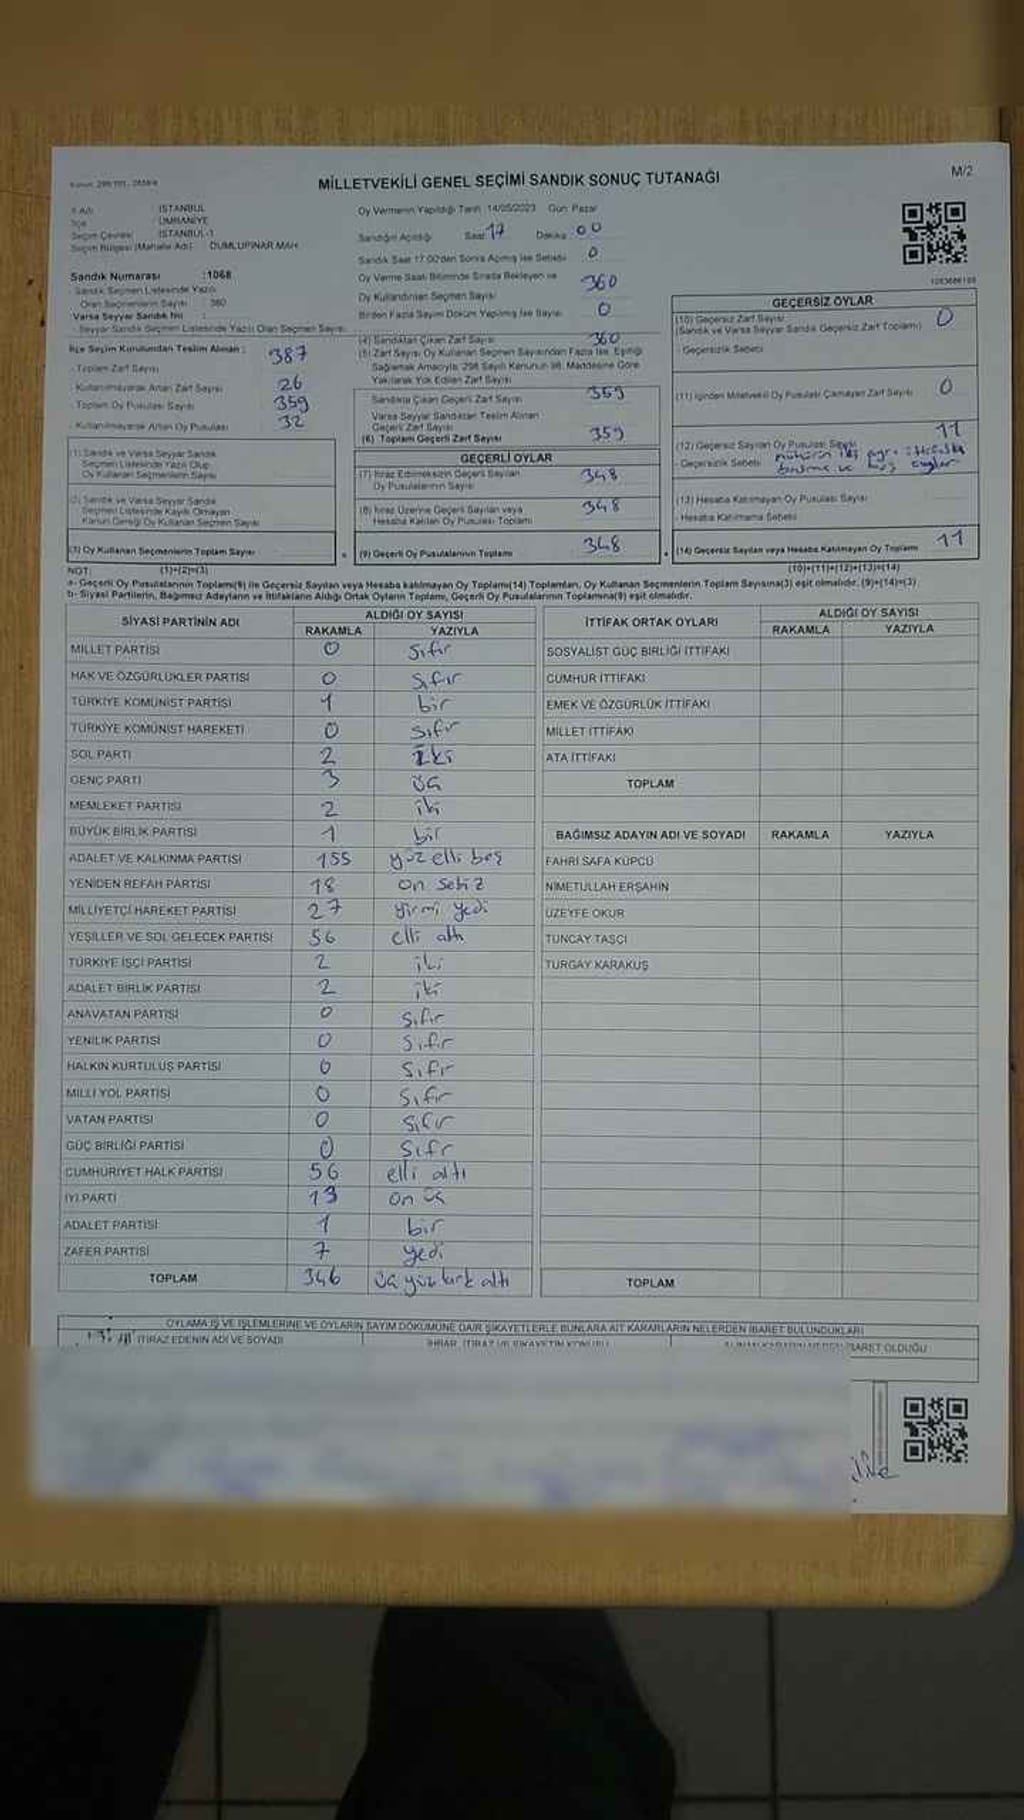 M/2
MİLLETVEKİLİ GENEL SEÇİMİ SANDIK SONUÇ TUTANAĞI
İSTANBUL
ÜMRANİYE
Seçim Çevresi İSTANBUL-1
Seçim Bölgesi (Mahalle Adı) DUMLUPINAR MAH.
Sandık Numarası :1068
Sandık Seçmen Listesinde Yazılı
Olan Seçmenlerin Sayısı : 380
Varsa Seyyar Sandık No :
Seyyar Sandık Seçmen Listesinde Yazılı Olan Seçmen Sayısı
Oy Vermenin Yapıldığı Tarih 14/05/2023 Gün Pazar
Sandığın Açıldığı Saat 17 Dakika 00
Sandık Saat 17:00'den Sonra Açılmış İse Sebebi 0
Oy Verme Saati Bitiminde Sırada Bekleyen ve
Oy Kullandırılan Seçmen Sayısı 360
Birden Fazla Sayım Döküm Yapılmış İse Sayısı 0
İlçe Seçim Kurulundan Teslim Alınan : 387
- Toplam Zarf Sayısı
- Kullanılmayarak Artan Zarf Sayısı 26
- Toplam Oy Pusulası Sayısı 359
- Kullanılmayarak Artan Oy Pusulası 32
(1) Sandık ve Varsa Seyyar Sandık
Seçmen Listesinde Yazılı Olup
Oy Kullanan Seçmenlerin Sayısı
(2) Sandık ve Varsa Seyyar Sandık
Seçmen Listesinde Kayıtlı Olmayan
Kanun Gereği Oy Kullanan Seçmen Sayısı
(3) Oy Kullanan Seçmenlerin Toplam Sayısı
(1)+(2)=(3)
(4) Sandıktan Çıkan Zarf Sayısı 360
(5) Zarf Sayısı Oy Kullanan Seçmen Sayısından Fazla İse, Eşitliği
Sağlamak Amacıyla, 298 Sayılı Kanunun 98. Maddesine Göre
Yakılarak Yok Edilen Zarf Sayısı
Sandıkta Çıkan Geçerli Zarf Sayısı 359
Varsa Seyyar Sandıktan Teslim Alınan
Geçerli Zarf Sayısı
(6) Toplam Geçerli Zarf Sayısı 359
GEÇERLİ OYLAR
(7) İtiraz Edilmeksizin Geçerli Sayılan
Oy Pusulalarının Sayısı 348
(8) İtiraz Üzerine Geçerli Sayılan veya
Hesaba Katılan Oy Pusulası Toplamı 348
(9) Geçerli Oy Pusulalarının Toplamı 348
GEÇERSİZ OYLAR
(10) Geçersiz Zarf Sayısı 0
(Sandık ve Varsa Seyyar Sandık Geçersiz Zarf Toplamı)
- Geçersizlik Sebebi
(11) İçinden Milletvekili Oy Pusulası Çıkmayan Zarf Sayısı 0
(12) Geçersiz Sayılan Oy Pusulası Sayısı 11
- Geçersizlik Sebebi mühürün iki ayrı ittifaka
basılma ve boş oylar
(13) Hesaba Katılmayan Oy Pusulası Sayısı
- Hesaba Katılmama Sebebi
(14) Geçersiz Sayılan veya Hesaba Katılmayan Oy Toplamı 11
(10)+(11)+(12)+(13)=(14)
NOT:
a- Geçerli Oy Pusulalarının Toplamı(9) ile Geçersiz Sayılan veya Hesaba katılmayan Oy Toplamı(14) Toplamları, Oy Kullanan Seçmenlerin Toplam Sayısına(3) eşit olmalıdır. (9)+(14)=(3)
b- Siyasi Partilerin, Bağımsız Adayların ve İttifakların Aldığı Ortak Oyların Toplamı, Geçerli Oy Pusulalarının Toplamına(9) eşit olmalıdır.
SİYASİ PARTİNİN ADI ALDIĞI OY SAYISI
RAKAMLA YAZIYLA
MİLLET PARTİSİ 0 Sıfır
HAK VE ÖZGÜRLÜKLER PARTİSİ 0 Sıfır
TÜRKİYE KOMÜNİST PARTİSİ 1 bir
TÜRKİYE KOMÜNİST HAREKETİ 0 Sıfır
SOL PARTİ 2 İki
GENÇ PARTİ 3 üç
MEMLEKET PARTİSİ 2 iki
BÜYÜK BİRLİK PARTİSİ 1 bir
ADALET VE KALKINMA PARTİSİ 155 yüz elli beş
YENİDEN REFAH PARTİSİ 18 on sekiz
MİLLİYETÇİ HAREKET PARTİSİ 27 yirmi yedi
YEŞİLLER VE SOL GELECEK PARTİSİ 56 elli altı
TÜRKİYE İŞÇİ PARTİSİ 2 iki
ADALET BİRLİK PARTİSİ 2 iki
ANAVATAN PARTİSİ 0 Sıfır
YENİLİK PARTİSİ 0 Sıfır
HALKIN KURTULUŞ PARTİSİ 0 Sıfır
MİLLİ YOL PARTİSİ 0 Sıfır
VATAN PARTİSİ 0 Sıfır
GÜÇ BİRLİĞİ PARTİSİ 0 Sıfır
CUMHURİYET HALK PARTİSİ 56 elli altı
İYİ PARTİ 13 on üç
ADALET PARTİSİ 1 bir
ZAFER PARTİSİ 7 yedi
TOPLAM 346 üç yüz kırk altı
İTTİFAK ORTAK OYLARI ALDIĞI OY SAYISI
RAKAMLA YAZIYLA
SOSYALİST GÜÇ BİRLİĞİ İTTİFAKI
CUMHUR İTTİFAKI
EMEK VE ÖZGÜRLÜK İTTİFAKI
MİLLET İTTİFAKI
ATA İTTİFAKI
TOPLAM
BAĞIMSIZ ADAYIN ADI VE SOYADI RAKAMLA YAZIYLA
FAHRİ SAFA KÜPCÜ
NİMETULLAH ERŞAHİN
ÜZEYFE OKUR
TUNCAY TAŞCI
TURGAY KARAKUŞ
TOPLAM
OYLAMA İŞ VE İŞLEMLERİNE VE OYLARIN SAYIM DÖKÜMÜNE DAİR ŞİKAYETLERLE BUNLARA AİT KARARLARIN NELERDEN İBARET BULUNDUKLARI
İTİRAZ EDENİN ADI VE SOYADI